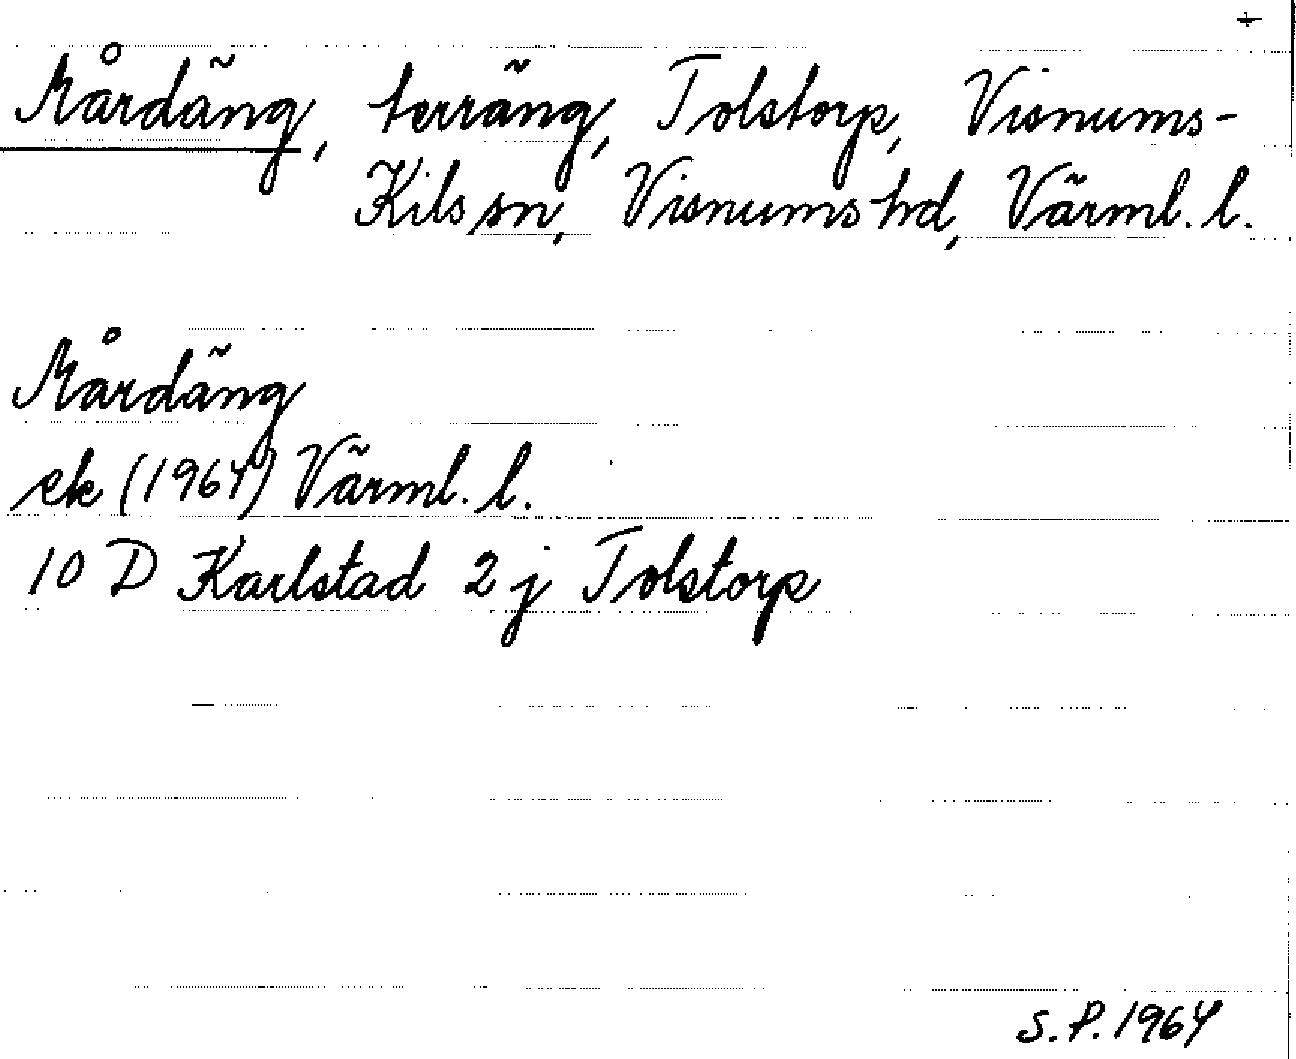 +
Mårdäng, terräng, Tolstorp, Visnums-
Kils sn, Visnums hd, Värml. l.
Mårdäng
ek (1964) Värml. l.
10 D Karlstad 2 j Tolstorp
S.P. 1964